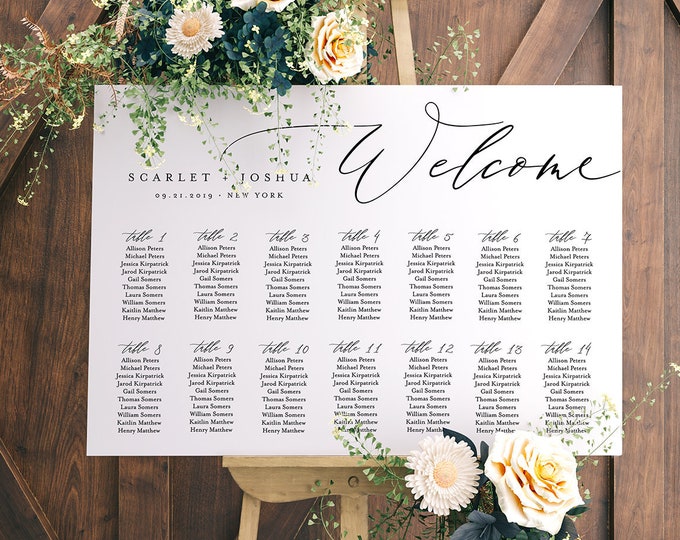 Welcome
SCARLET + JOSHUA
09.21.2019 • NEW YORK
table 1
Allison Peters
Michael Peters
Jessica Kirpatrick
Jarod Kirpatrick
Gail Somers
Thomas Somers
Laura Somers
William Somers
Kaitlin Matthew
Henry Matthew
table 2
Allison Peters
Michael Peters
Jessica Kirpatrick
Jarod Kirpatrick
Gail Somers
Thomas Somers
Laura Somers
William Somers
Kaitlin Matthew
Henry Matthew
table 3
Allison Peters
Michael Peters
Jessica Kirpatrick
Jarod Kirpatrick
Gail Somers
Thomas Somers
Laura Somers
William Somers
Kaitlin Matthew
Henry Matthew
table 4
Allison Peters
Michael Peters
Jessica Kirpatrick
Jarod Kirpatrick
Gail Somers
Thomas Somers
Laura Somers
William Somers
Kaitlin Matthew
Henry Matthew
table 5
Allison Peters
Michael Peters
Jessica Kirpatrick
Jarod Kirpatrick
Gail Somers
Thomas Somers
Laura Somers
William Somers
Kaitlin Matthew
Henry Matthew
table 6
Allison Peters
Michael Peters
Jessica Kirpatrick
Jarod Kirpatrick
Gail Somers
Thomas Somers
Laura Somers
William Somers
Kaitlin Matthew
Henry Matthew
table 7
Allison Peters
Michael Peters
Jessica Kirpatrick
Jarod Kirpatrick
Gail Somers
Thomas Somers
Laura Somers
William Somers
Kaitlin Matthew
Henry Matthew
table 8
Allison Peters
Michael Peters
Jessica Kirpatrick
Jarod Kirpatrick
Gail Somers
Thomas Somers
Laura Somers
William Somers
Kaitlin Matthew
Henry Matthew
table 9
Allison Peters
Michael Peters
Jessica Kirpatrick
Jarod Kirpatrick
Gail Somers
Thomas Somers
Laura Somers
William Somers
Kaitlin Matthew
Henry Matthew
table 10
Allison Peters
Michael Peters
Jessica Kirpatrick
Jarod Kirpatrick
Gail Somers
Thomas Somers
Laura Somers
William Somers
Kaitlin Matthew
Henry Matthew
table 11
Allison Peters
Michael Peters
Jessica Kirpatrick
Jarod Kirpatrick
Gail Somers
Thomas Somers
Laura Somers
William Somers
Kaitlin Matthew
Henry Matthew
table 12
Allison Peters
Michael Peters
Jessica Kirpatrick
Jarod Kirpatrick
Gail Somers
Thomas Somers
Laura Somers
William Somers
Kaitlin Matthew
Henry Matthew
table 13
Allison Peters
Michael Peters
Jessica Kirpatrick
Jarod Kirpatrick
Gail Somers
Thomas Somers
Laura Somers
William Somers
Kaitlin Matthew
Henry Matthew
table 14
Allison Peters
Michael Peters
Jessica Kirpatrick
Jarod Kirpatrick
Gail Somers
Thomas Somers
Laura Somers
William Somers
Kaitlin Matthew
Henry Matthew